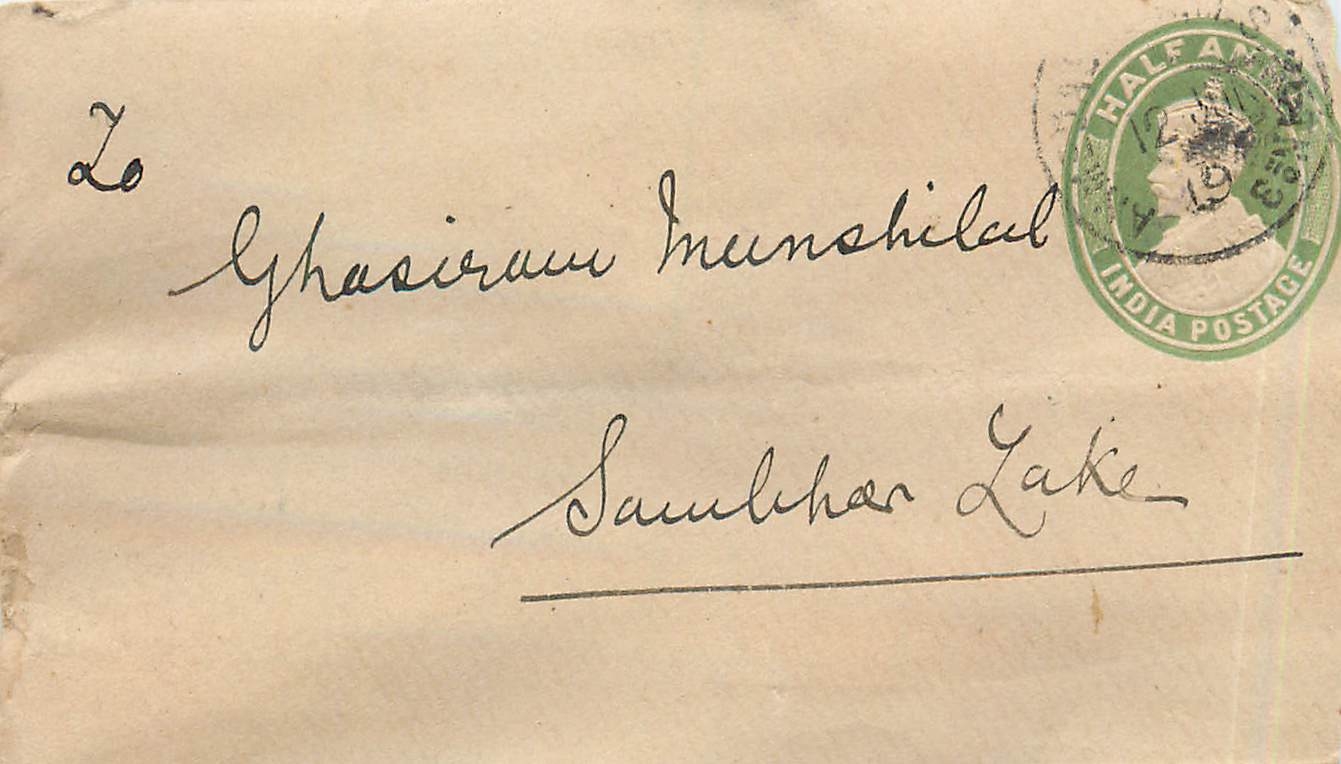 HALF ANNA
12 JUL
19
INDIA POSTAGE
To
Ghasiram Munshilal
Sambhar Lake